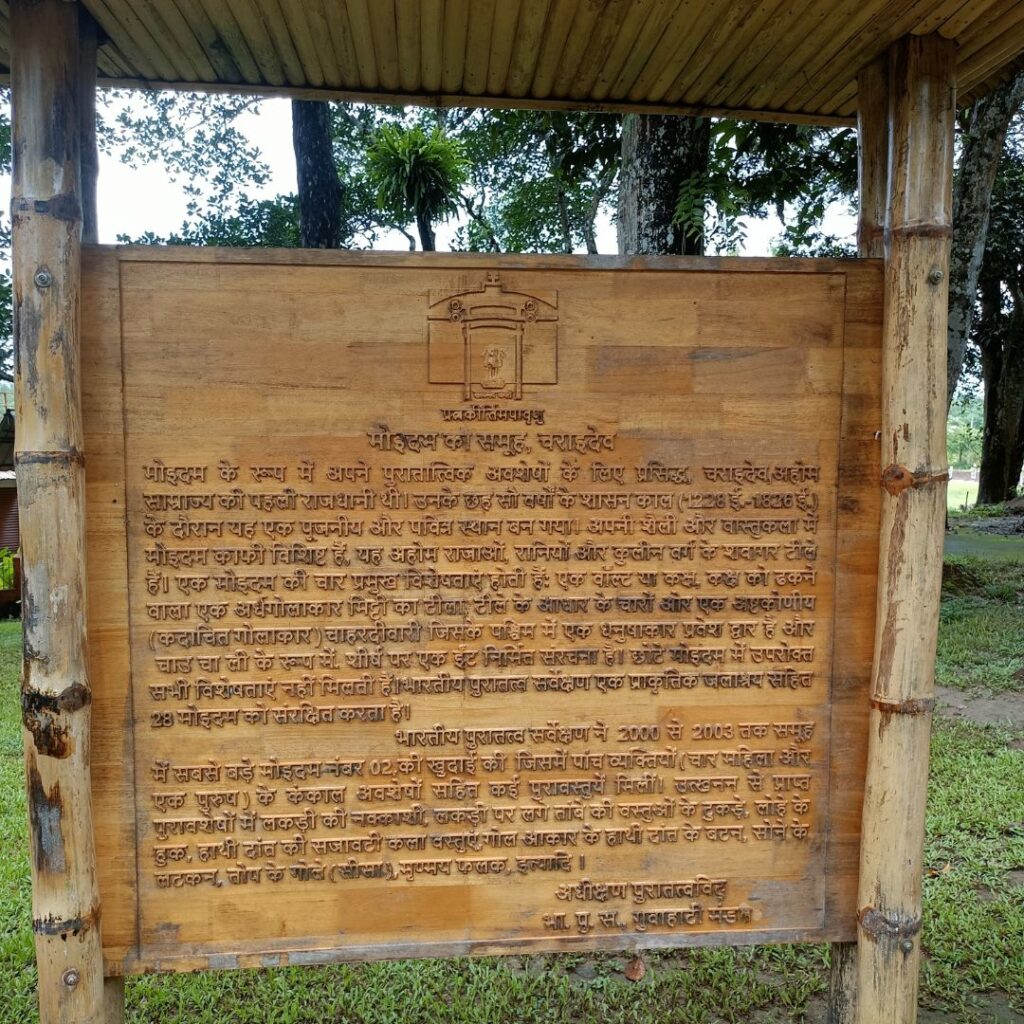 प्रत्नकीर्त्तिमपावृणु
मोइदम का समूह, चराइदेव
मोइदम के रूप में अपने पुरातात्त्विक अवशेषों के लिए प्रसिद्ध, चराइदेव,अहोम
साम्राज्य की पहली राजधानी थी। उनके छह सौ वर्षों के शासन काल (1228 ई.-1826 ई.)
के दौरान यह एक पूजनीय और पवित्र स्थान बन गया। अपनी शैली और वास्तुकला में
मोइदम काफी विशिष्ट हैं, यह अहोम राजाओं, रानियों और कुलीन वर्ग के शवागार टीले
हैं। एक मोइदम की चार प्रमुख विशेषताएं होती हैं: एक वॉल्ट या कक्ष, कक्ष को ढकने
वाला एक अर्धगोलाकार मिट्टी का टीला, टीले के आधार के चारों ओर एक अष्टकोणीय
(कदाचित गोलाकार) चाहरदीवारी जिसके पश्चिम में एक धनुषाकार प्रवेश द्वार है और
चाउ चा ली के रूप में, शीर्ष पर एक ईंट निर्मित संरचना है। छोटे मोइदम में उपरोक्त
सभी विशेषताएं नहीं मिलती हैं। भारतीय पुरातत्व सर्वेक्षण एक प्राकृतिक जलाश्रय सहित
28 मोइदम को संरक्षित करता है।
भारतीय पुरातत्व सर्वेक्षण ने 2000 से 2003 तक समूह
में सबसे बड़े मोइदम नंबर 02,की खुदाई की जिसमें पांच व्यक्तियों (चार महिला और
एक पुरुष) के कंकाल अवशेषों सहित कई पुरावस्तुयें मिलीं। उत्खनन से प्राप्त
पुरावशेषों में लकड़ी की नक्काशी, लकड़ी पर लगे तांबे की वस्तुओं के टुकड़े, लोहे के
हुक, हाथी दांत की सजावटी कला वस्तुएं,गोल आकार के हाथी दांत के बटन, सोने के
लटकन, तोप के गोले (सीसा), मृण्मय फलक, इत्यादि ।
अधीक्षण पुरातत्वविद्
भा. पु. स., गुवाहाटी मंडल